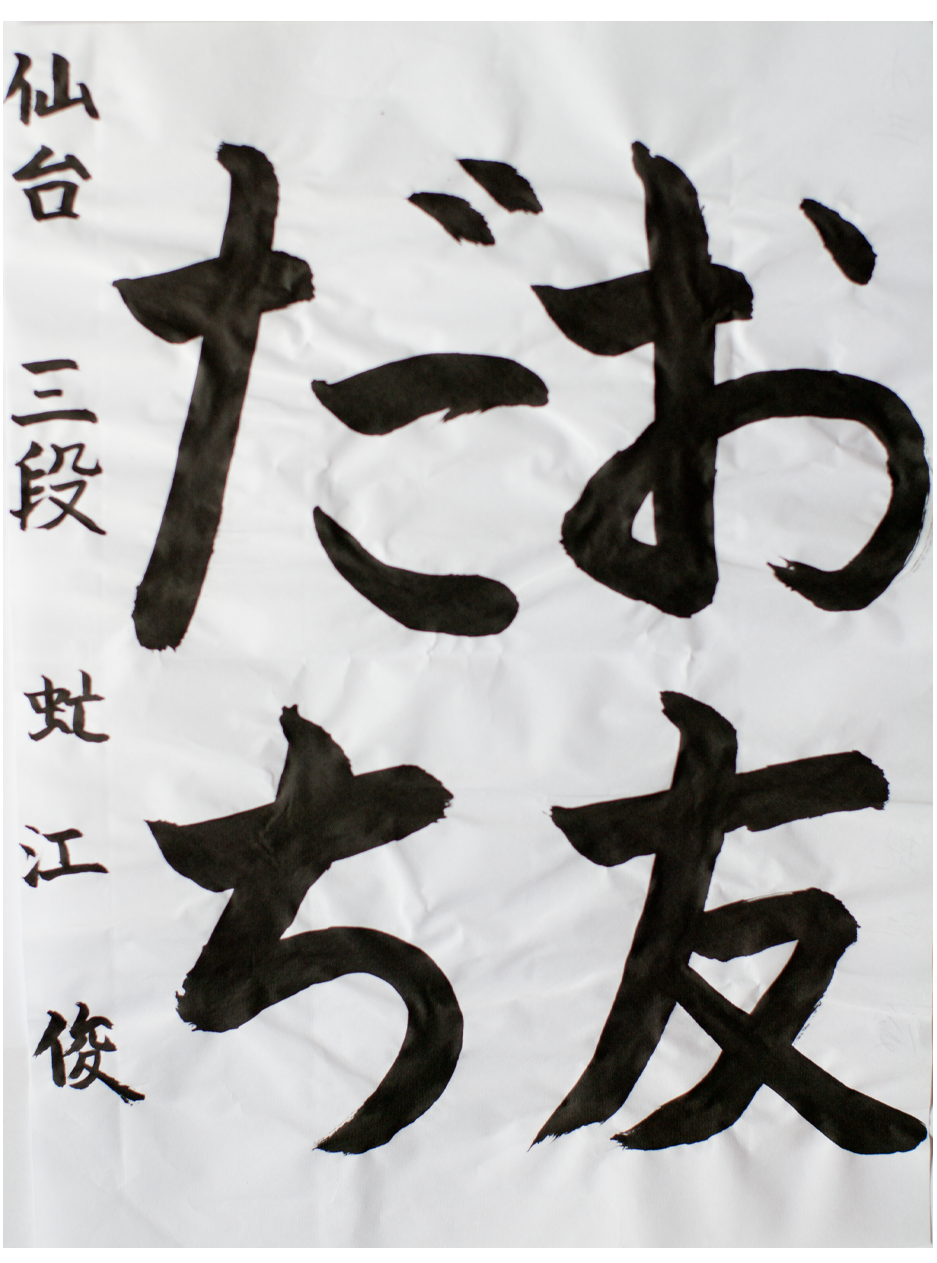 お友
だち
仙台 三段 虻江 俊